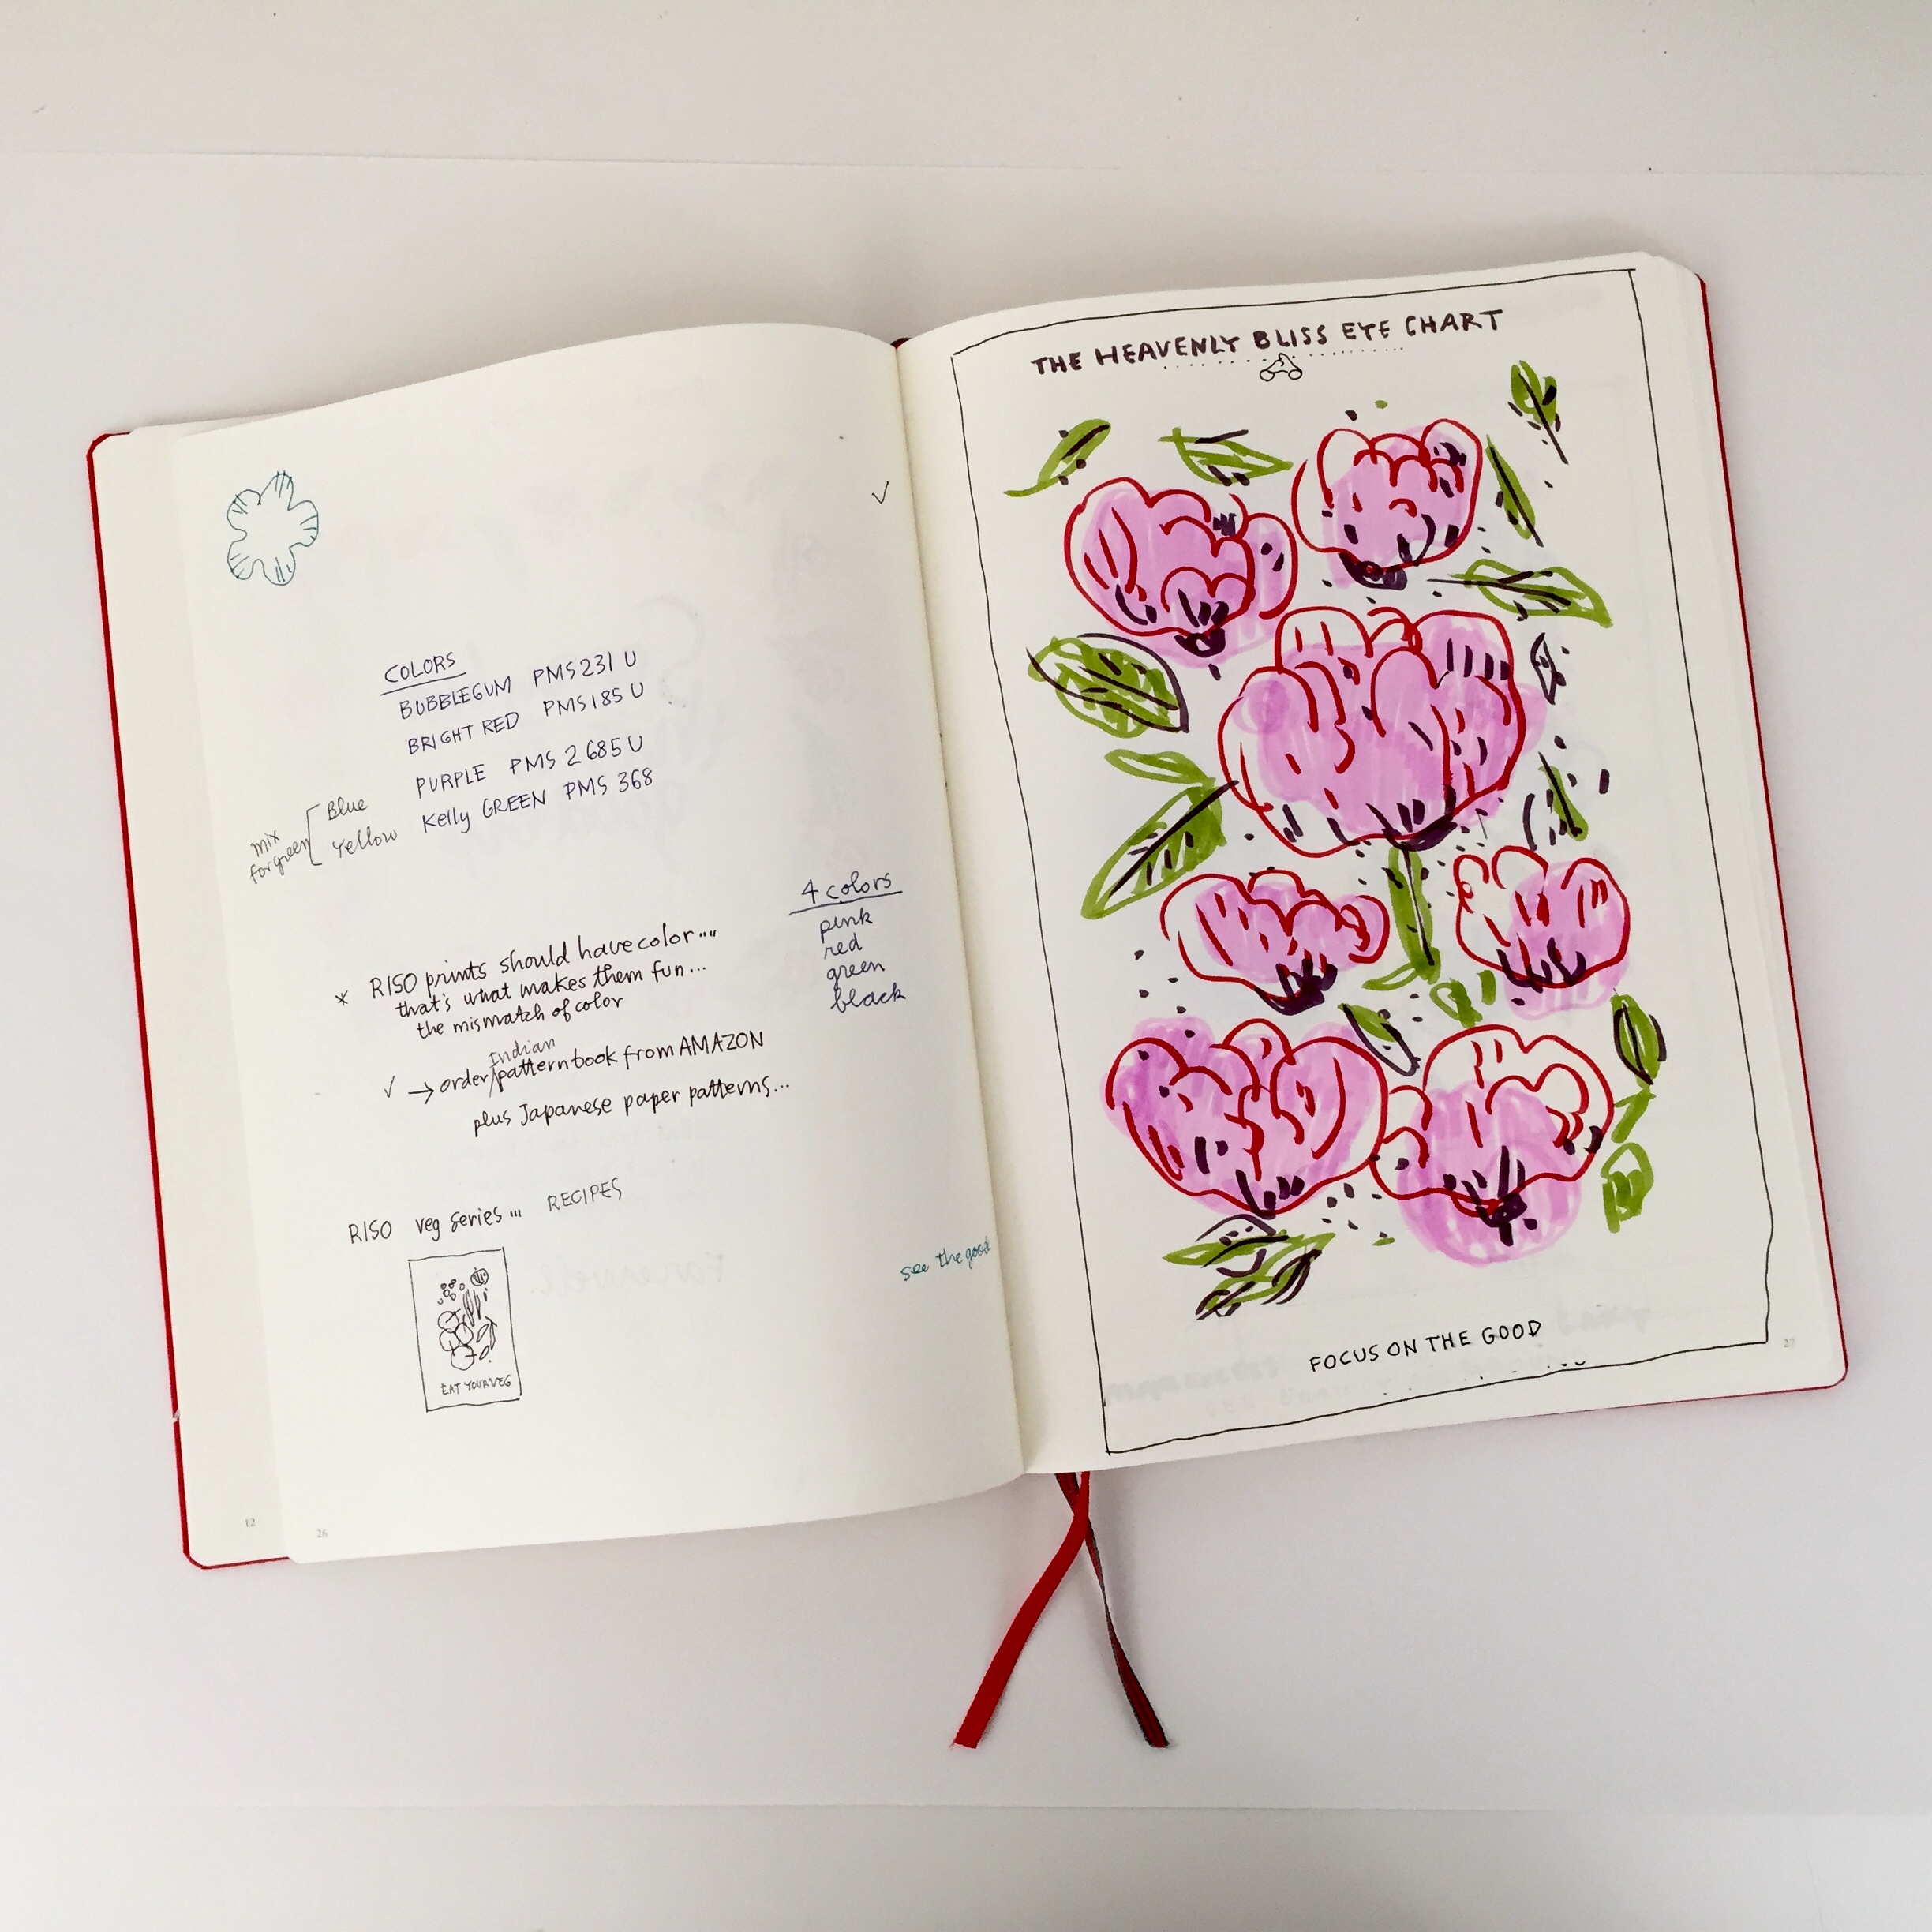 COLORS
BUBBLEGUM PMS 231 U
BRIGHT RED PMS 185 U
PURPLE PMS 2685 U
Kelly GREEN PMS 368
mix
for green
Blue
Yellow
4 colors
pink
red
green
black
* RISO prints should have color....
that's what makes them fun...
the mismatch of color
Indian
✓ → order/pattern book from AMAZON
plus Japanese paper patterns...
RISO veg series... RECIPES
EAT YOUR VEG
see the good
12
26
THE HEAVENLY BLISS EYE CHART
FOCUS ON THE GOOD
27